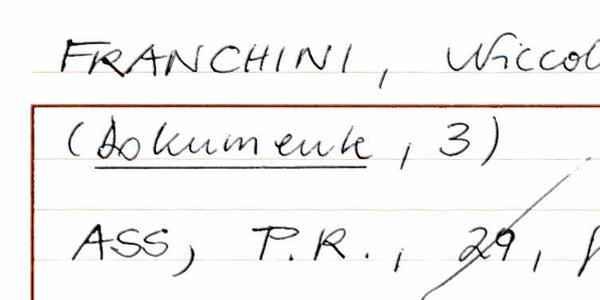 FRANCHINI, Niccol
(Dokumente, 3)
ASS, P.R., 29, f